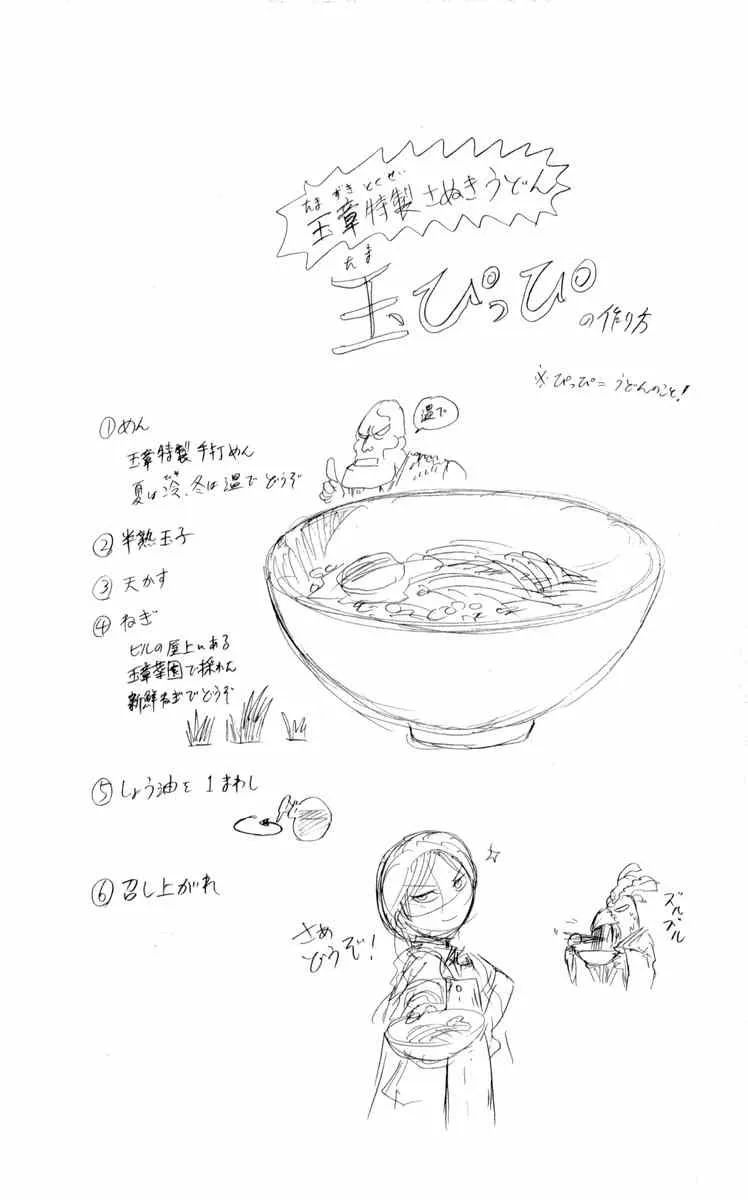 たまずきとくせい
玉章特製さぬきうどん
たま
玉ぴっぴの作り方
※ぴっぴ=うどんのこと!
①めん
玉章特製手打めん
夏は冷、冬は温でどうぞ
温で
②半熟玉子
③天かす
④ねぎ
ビルの屋上にある
玉章菜園で採れた
新鮮ねぎでどうぞ
⑤しょう油を1まわし
⑥召し上がれ
さぁ
どうぞ!
ズルズル